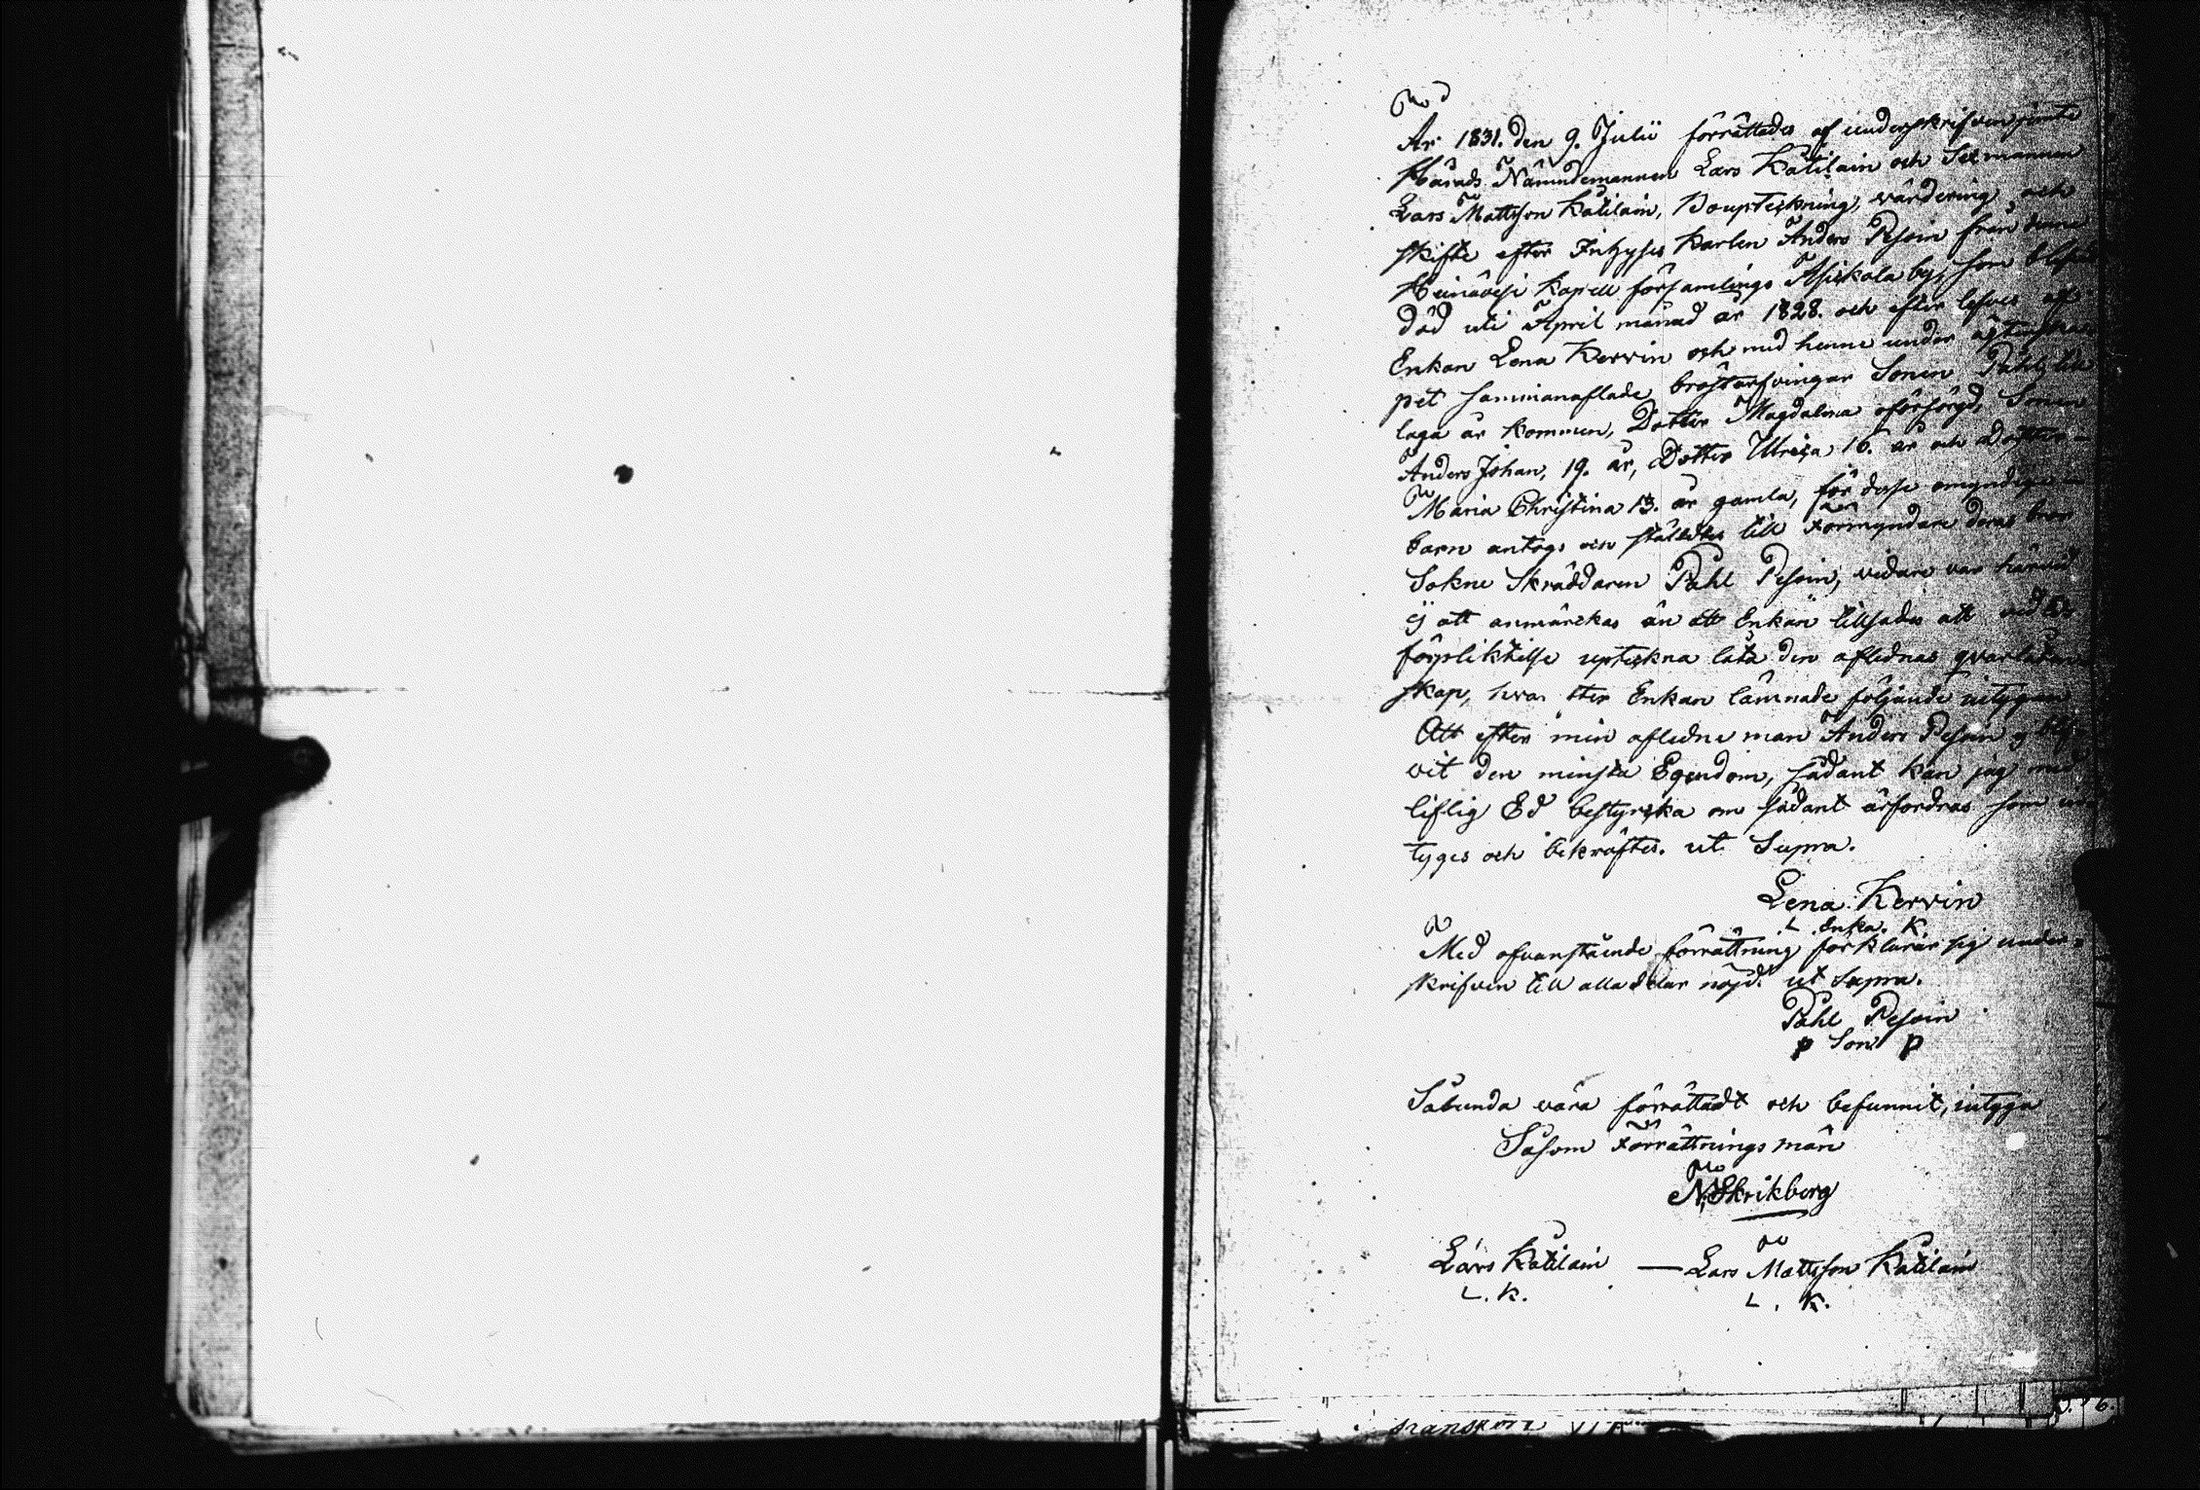 År 1831. den 9. Julii förrättades af underskrifven jemte
Härads Nämndemannen Lars Katilain och Sexmannen
Lars Mattsson Katilain, Boupteckning, värdering och
skifte efter Inhyses Karlen Anders Pesoin från denne
Heinävesi Kapell församlings by, som blifvit
död uti April månad år 1828. och efter lefves af
Enkan Lena Kervin och med henne under äktenska-
pet sammanaflade bröstarfvingar Sonen Påhl, till
laga år kommen, Dotter Magdalena oförsörgd, Sonen
Anders Johan, 19. år, Dotter Ulrica 16. år och Dotter
Maria Christina 13. år gamla, för desse omyndige
barn antogs och stäldtes till Förmyndare deras bror
Sokne Skräddaren Påhl Pesoin, vidare var härvid
ej att anmärckas än att Enkan tillsades att vid Eds
förpliktelse upteckna låta den aflednas qvarlåten-
skap, hvar efter Enkan lämnade följande intygan
Att efter min afledne man Anders Pesoin ej blif-
vit den minsta Egendom, sådant kan jag med
liflig Ed bestyrcka om sådant ärfordras som in-
tyges och bekräftes. ut Supra.
Lena Kervin
L. Enka. K
Med ofvanstående förrättning förklarar sig under-
skrifven till alla delar nöjd. ut Supra.
Påhl Pesoin
P Son P
Sålunda vara förrättadt och befunnit, intyga
Såsom Förrättnings män
N. Skrikberg
Lars Katilain — Lars Mattsson Katilain
L. K. L. K.